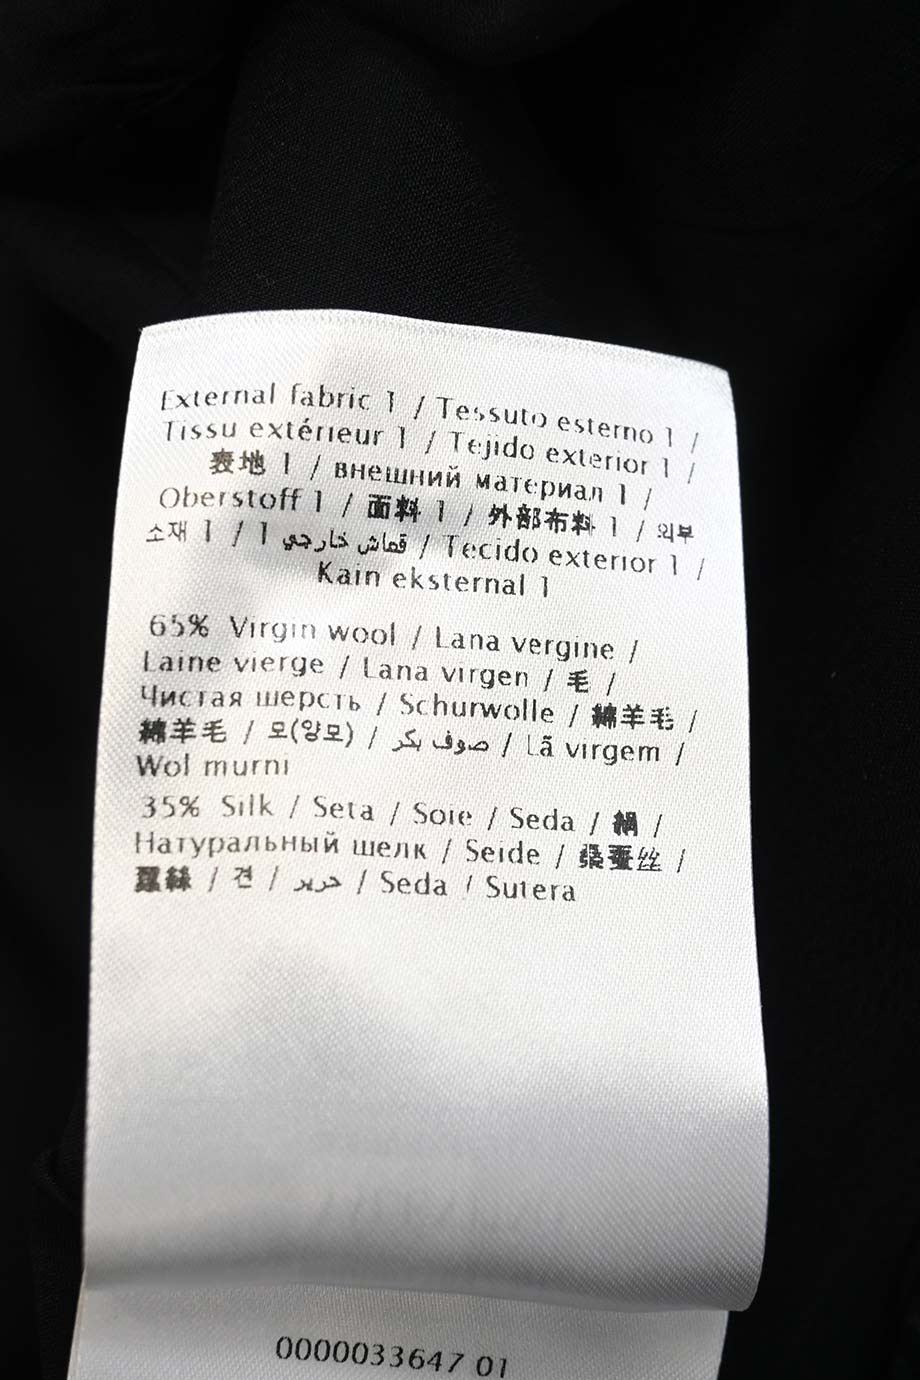 External fabric 1 / Tessuto esterno 1 /
Tissu extérieur 1 / Tejido exterior 1 /
表地 1 / внешний материал 1 /
Oberstoff 1 / 面料 1 / 外部布料 1 / 외부
소재 1 / قماش خارجي 1 / Tecido exterior 1 /
Kain eksternal 1
65% Virgin wool / Lana vergine /
Laine vierge / Lana virgen / 毛 /
Чистая шерсть / Schurwolle / 綿羊毛 /
綿羊毛 / 모(양모) / صوف بكر / Lã virgem /
Wol murni
35% Silk / Seta / Soie / Seda / 絹 /
Натуральный шелк / Seide / 桑蚕丝 /
蠶絲 / 견 / حرير / Seda / Sutera
0000033647 01